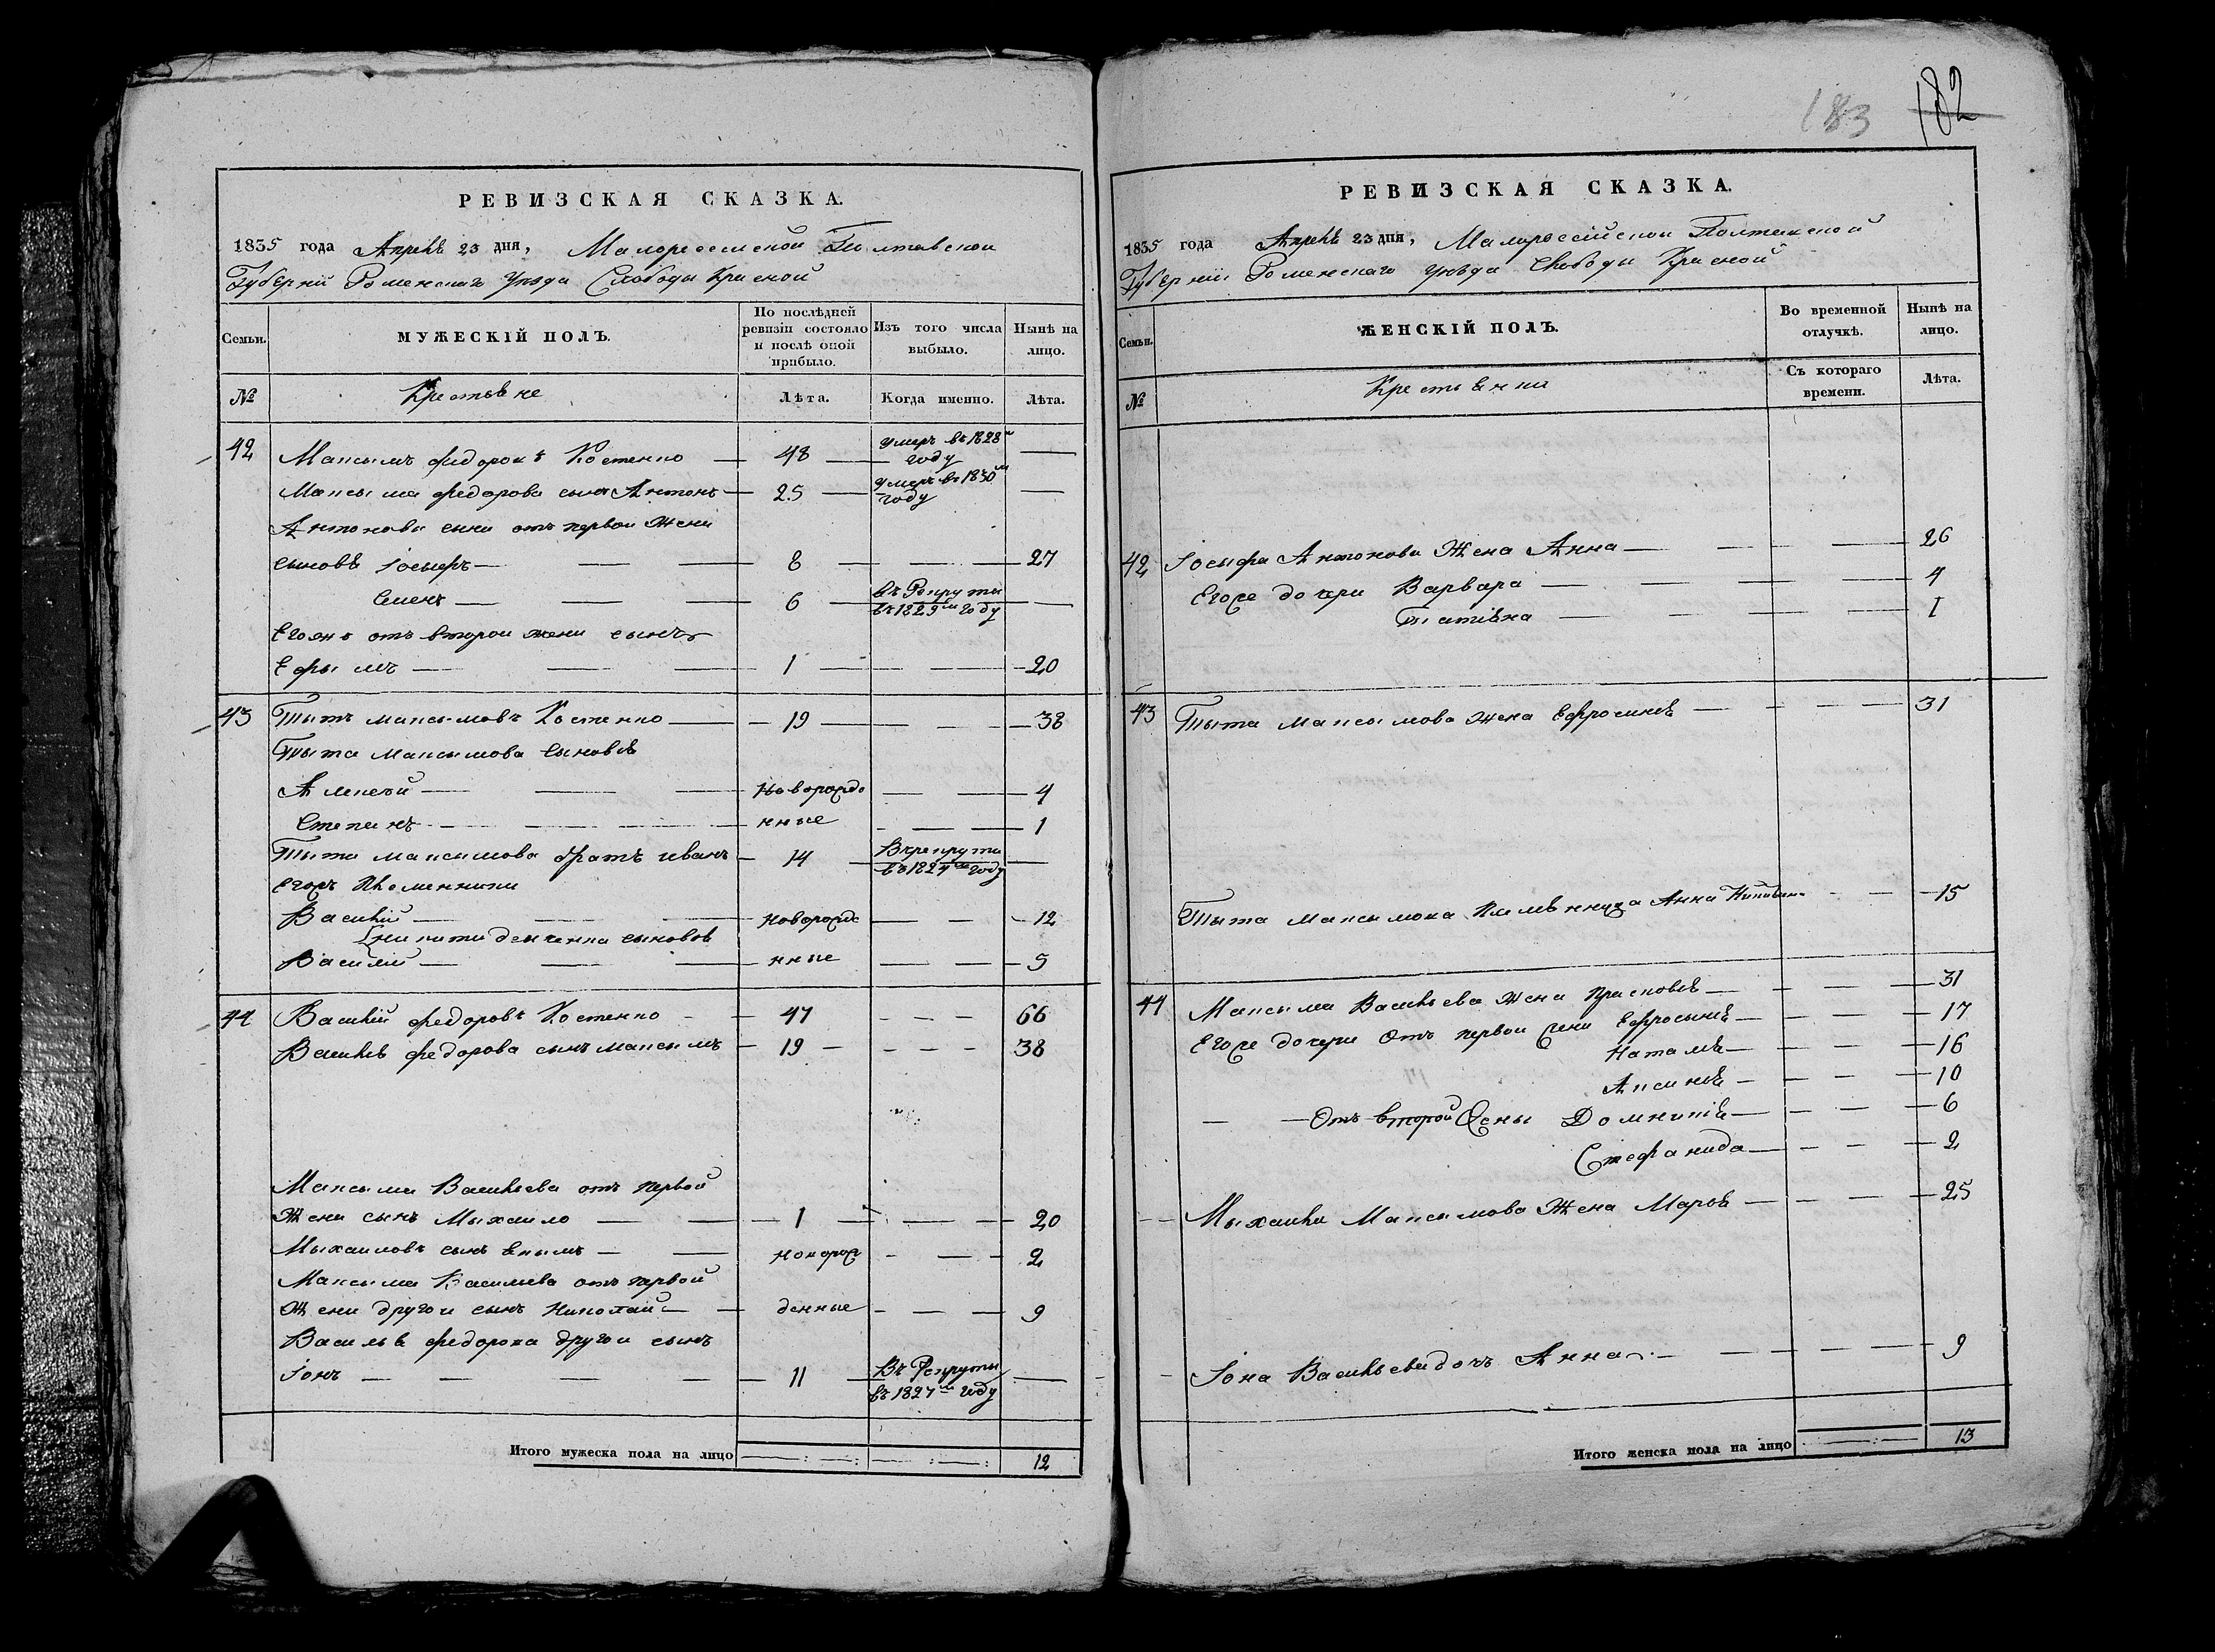 РЕВИЗСКАЯ СКАЗКА.
1835 года Апрелѣ 23 дня, Малоросеиской Полтавской
Губерніи Роменскаго Уѣзда Слободы Красной
Семьи.
МУЖЕСКІЙ ПОЛЪ.
По послѣдней ревизіи состояло и послѣ оной прибыло.
Изъ того числа выбыло.
Нынѣ на лицо.
№
Крестьяне
Лѣта.
Когда именно.
Лѣта.
42 Максымъ Федоровъ Костенко — 48 — умеръ въ 1828м году —
Максыма Федорова сынъ Антонъ — 25 — умеръ въ 1830м году —
Антонова сыни отъ первой жени
сыновѣ Іосыфъ — — — 8 — — — 27
Семенъ — — — 6 — въ Рекруты въ 1829м году —
Егожъ отъ второй жени сынъ
Ефымъ — — — 1 — — — 20
43 Тытъ Максымовъ Костенко — 19 — — — 38
Тыта Максымова сыновѣ
Алексѣй — — — новорожде — — 4
Степанъ — — — нные — — 1
Тыта Максымова братъ иванъ — 14 — Врекруты въ 1824м году —
Егожъ Племенники
Василій — — — новорожде — — 12
Никиты Демченка сыновѣ
Василій — — — нные — — 5
44 Василій Федоровъ Костенко — 47 — — — 66
Василѣ Федорова сынъ Максымъ — 19 — — — — 38
Максыма Васильева отъ первой
Жени сынъ Мыхаило — — 1 — — — 20
Мыхаиловъ сынъ Екымъ — — новорож — — 2
Максыма Васильева отъ первой
Жени другои сынъ Николай — — денные — — — 9
Василья Федорова другои сынъ
Іонъ — — — — 11 — Въ Рекруты въ 1827м году —
Итого мужеска пола на лицо 12
183 182
РЕВИЗСКАЯ СКАЗКА.
1835 года Апрелѣ 23 дня, Малоросеійской Полтавской
Губерніи Роменскаго Уѣзда Слободы Красной
Семьи.
ЖЕНСКІЙ ПОЛЪ.
Во временной отлучкѣ.
Нынѣ на лицо.
№
Крестьянки
Съ котораго времени.
Лѣта.
42 Іосыфа Антонова Жена Анна — — — — 26
Егоже дочери Варвара — — — — 4
Татіяна — — — — 1
43 Тыта Максымова жена Ефросинѣ — — — — 31
Тыта Максымова Племѣнница Анна — — 15
44 Максыма Васильева жена Прасковѣ — — — — 31
Егоже дочери Отъ первой Жени Ефросынѣ — — — — 17
Наталѣ — — — — 16
Аксинѣ — — — — 10
— — Отъ второй Жены Домникіѣ — — — — 6
Стефанида — — — — 2
Мыхаила Максымова Жена Марѣ — — — — 25
Іона Васильева дочъ Анна — — — — 9
Итого женска пола на лицо 13